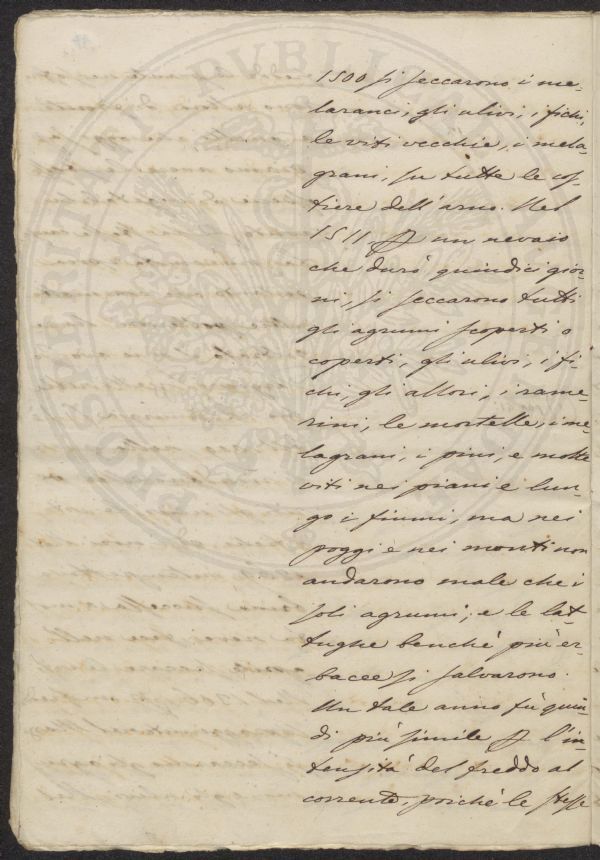 1500 si seccarono i me-
laranci, gli ulivi, i fichi,
le viti vecchie, i mela-
grani, su tutte le cos-
tiere dell'arno. Nel
1511. un nevaio
che durò quindici gior-
ni, si seccarono tutti
gli agrumi scoperti o
coperti, gli ulivi, i fi-
chi, gli allori, i rame-
rini, le mortelle, i me-
lagrani, i pini, e molte
viti nei piani e lun-
go i fiumi, ma nei
poggi e nei monti non
andarono male che i
soli agrumi; e le lat-
tughe benchè più er-
bacee si salvarono.
Un tale anno fù quin-
di più simile l'in-
tensità del freddo al
corrente, poichè le stesse
PROSPERITATI PVBLICAE